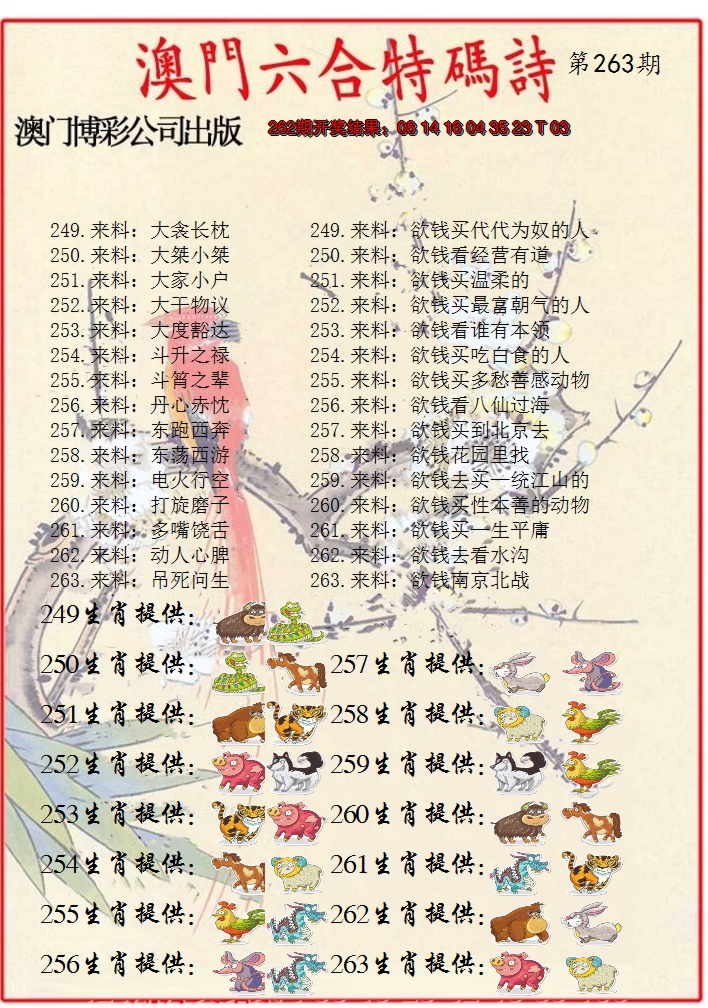 澳門六合特碼詩 第263期
澳门博彩公司出版 262期开奖结果：08 14 16 04 35 23 T 03
249.来料：大衾长枕 249.来料：欲钱买代代为奴的人
250.来料：大桀小桀 250.来料：欲钱看经营有道
251.来料：大家小户 251.来料：欲钱买温柔的
252.来料：大干物议 252.来料：欲钱买最富朝气的人
253.来料：大度豁达 253.来料：欲钱看谁有本领
254.来料：斗升之禄 254.来料：欲钱买吃白食的人
255.来料：斗筲之辈 255.来料：欲钱买多愁善感动物
256.来料：丹心赤忱 256.来料：欲钱看八仙过海
257.来料：东跑西奔 257.来料：欲钱买到北京去
258.来料：东荡西游 258.来料：欲钱花园里找
259.来料：电火行空 259.来料：欲钱去买一统江山的
260.来料：打旋磨子 260.来料：欲钱买性本善的动物
261.来料：多嘴饶舌 261.来料：欲钱买一生平庸
262.来料：动人心脾 262.来料：欲钱去看水沟
263.来料：吊死问生 263.来料：欲钱南京北战
249生肖提供：
250生肖提供： 257生肖提供：
251生肖提供： 258生肖提供：
252生肖提供： 259生肖提供：
253生肖提供： 260生肖提供：
254生肖提供： 261生肖提供：
255生肖提供： 262生肖提供：
256生肖提供： 263生肖提供：